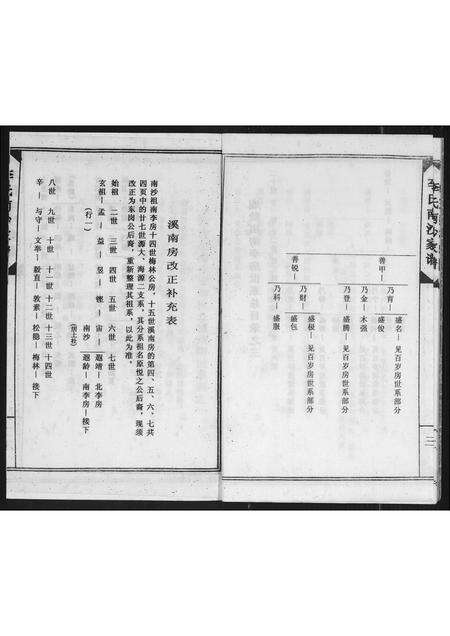 李氏南沙家谱
善甲—
乃育—
盛名—见百岁房世系部分
盛俊
乃金—木强
乃登—盛腾—见百岁房世系部分
善锐—
乃财—
盛根—见百岁房世系部分
盛包
乃科—盛服
溪南房改正补充表
南沙祖南李房十四世梅林公房，十五世溪南房的第四、五、六、七共
四页中的廿七世源大、海源二支系，其分系祖名原悦之公后裔，现须
改正为东岗公后裔，重新整理其祖系，以此为准。
始祖 二世 三世 四世 五世 六世 七世
玄祖—孟—益—昱—铿—宙—遐靖—北李房
（行一）
南沙 遐龄—南李房—接下
（房上村）
八世 九世 十世 十一世 十二世 十三世 十四世
辛—与守—文奉—毅直—敦素—松隐—梅林—接下